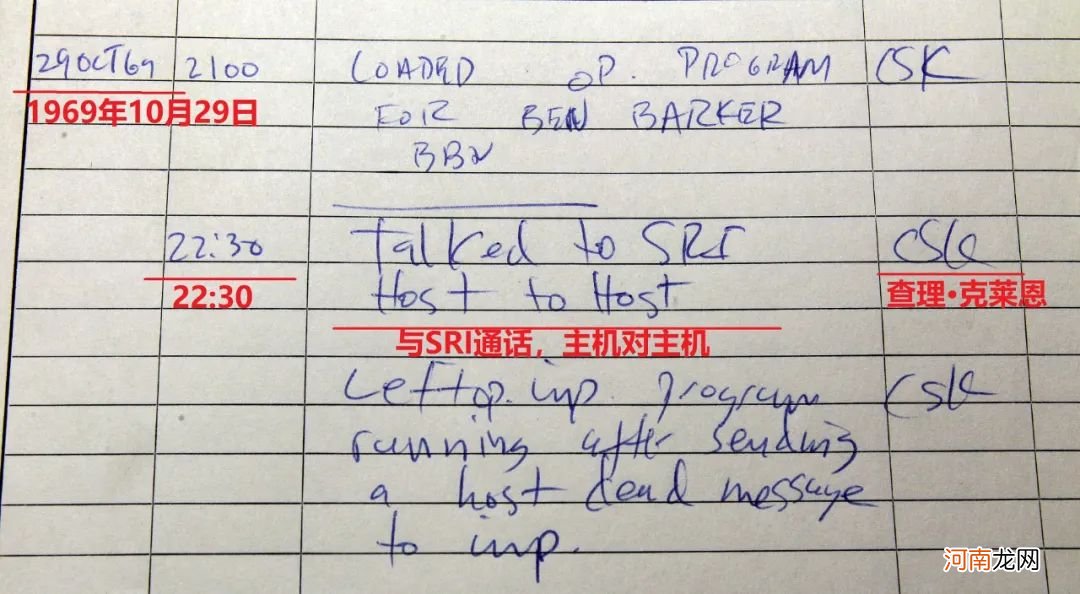 29OCT69 2100 LOADED OP. PROGRAM CSK
1969年10月29日
FOR BEN BARKER
BBN
22:30 Talked to SRI CSK
22:30 Host to Host 查理·克莱恩
与SRI通话，主机对主机
Left op. imp. program CSK
running after sending
a host dead message
to imp.
河南龙网